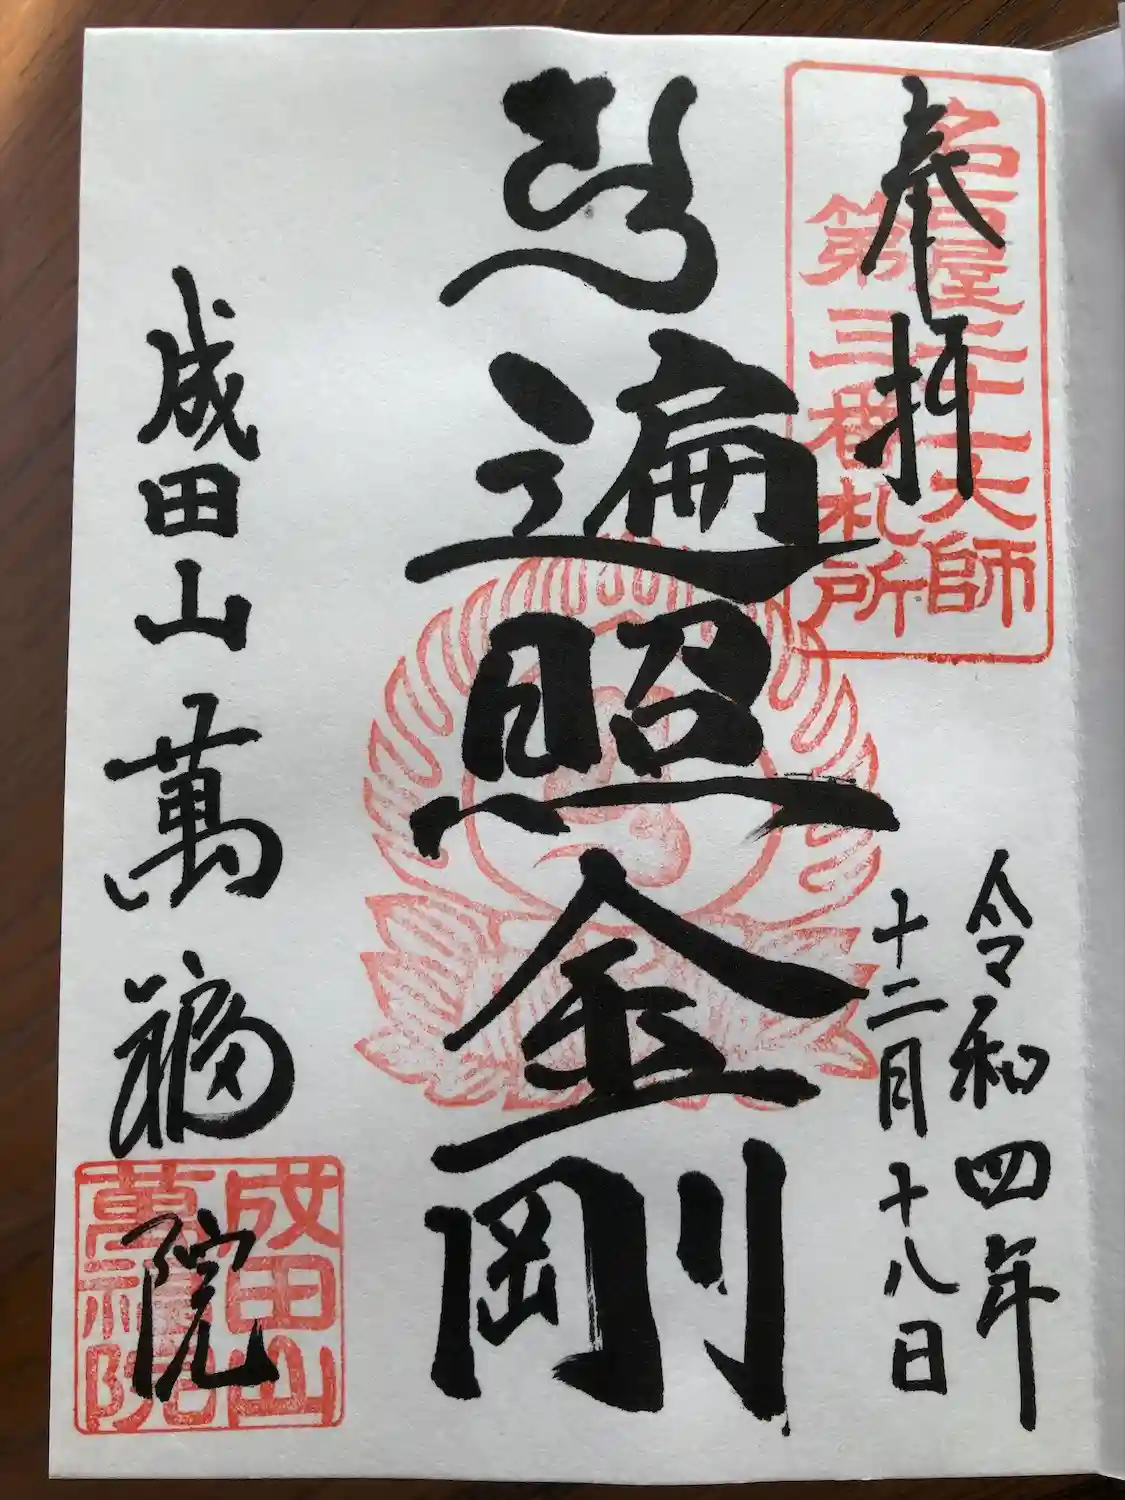 奉拝
名古屋二十一大師
第三番札所
令和四年
十二月十八日
遍照金剛
成田山萬福院
成田山
萬福院